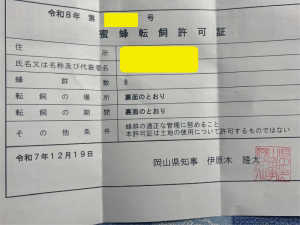 令和8年 第 号
蜜蜂転飼許可証
住所
氏名又は名称及び代表者名
蜂群数 8
転飼の場所 裏面のとおり
転飼の期間 裏面のとおり
その他条件 蜂群の適正な管理に努めること
本許可証は土地の使用について許可するものではない
令和7年12月19日
岡山県知事 伊原木 隆太